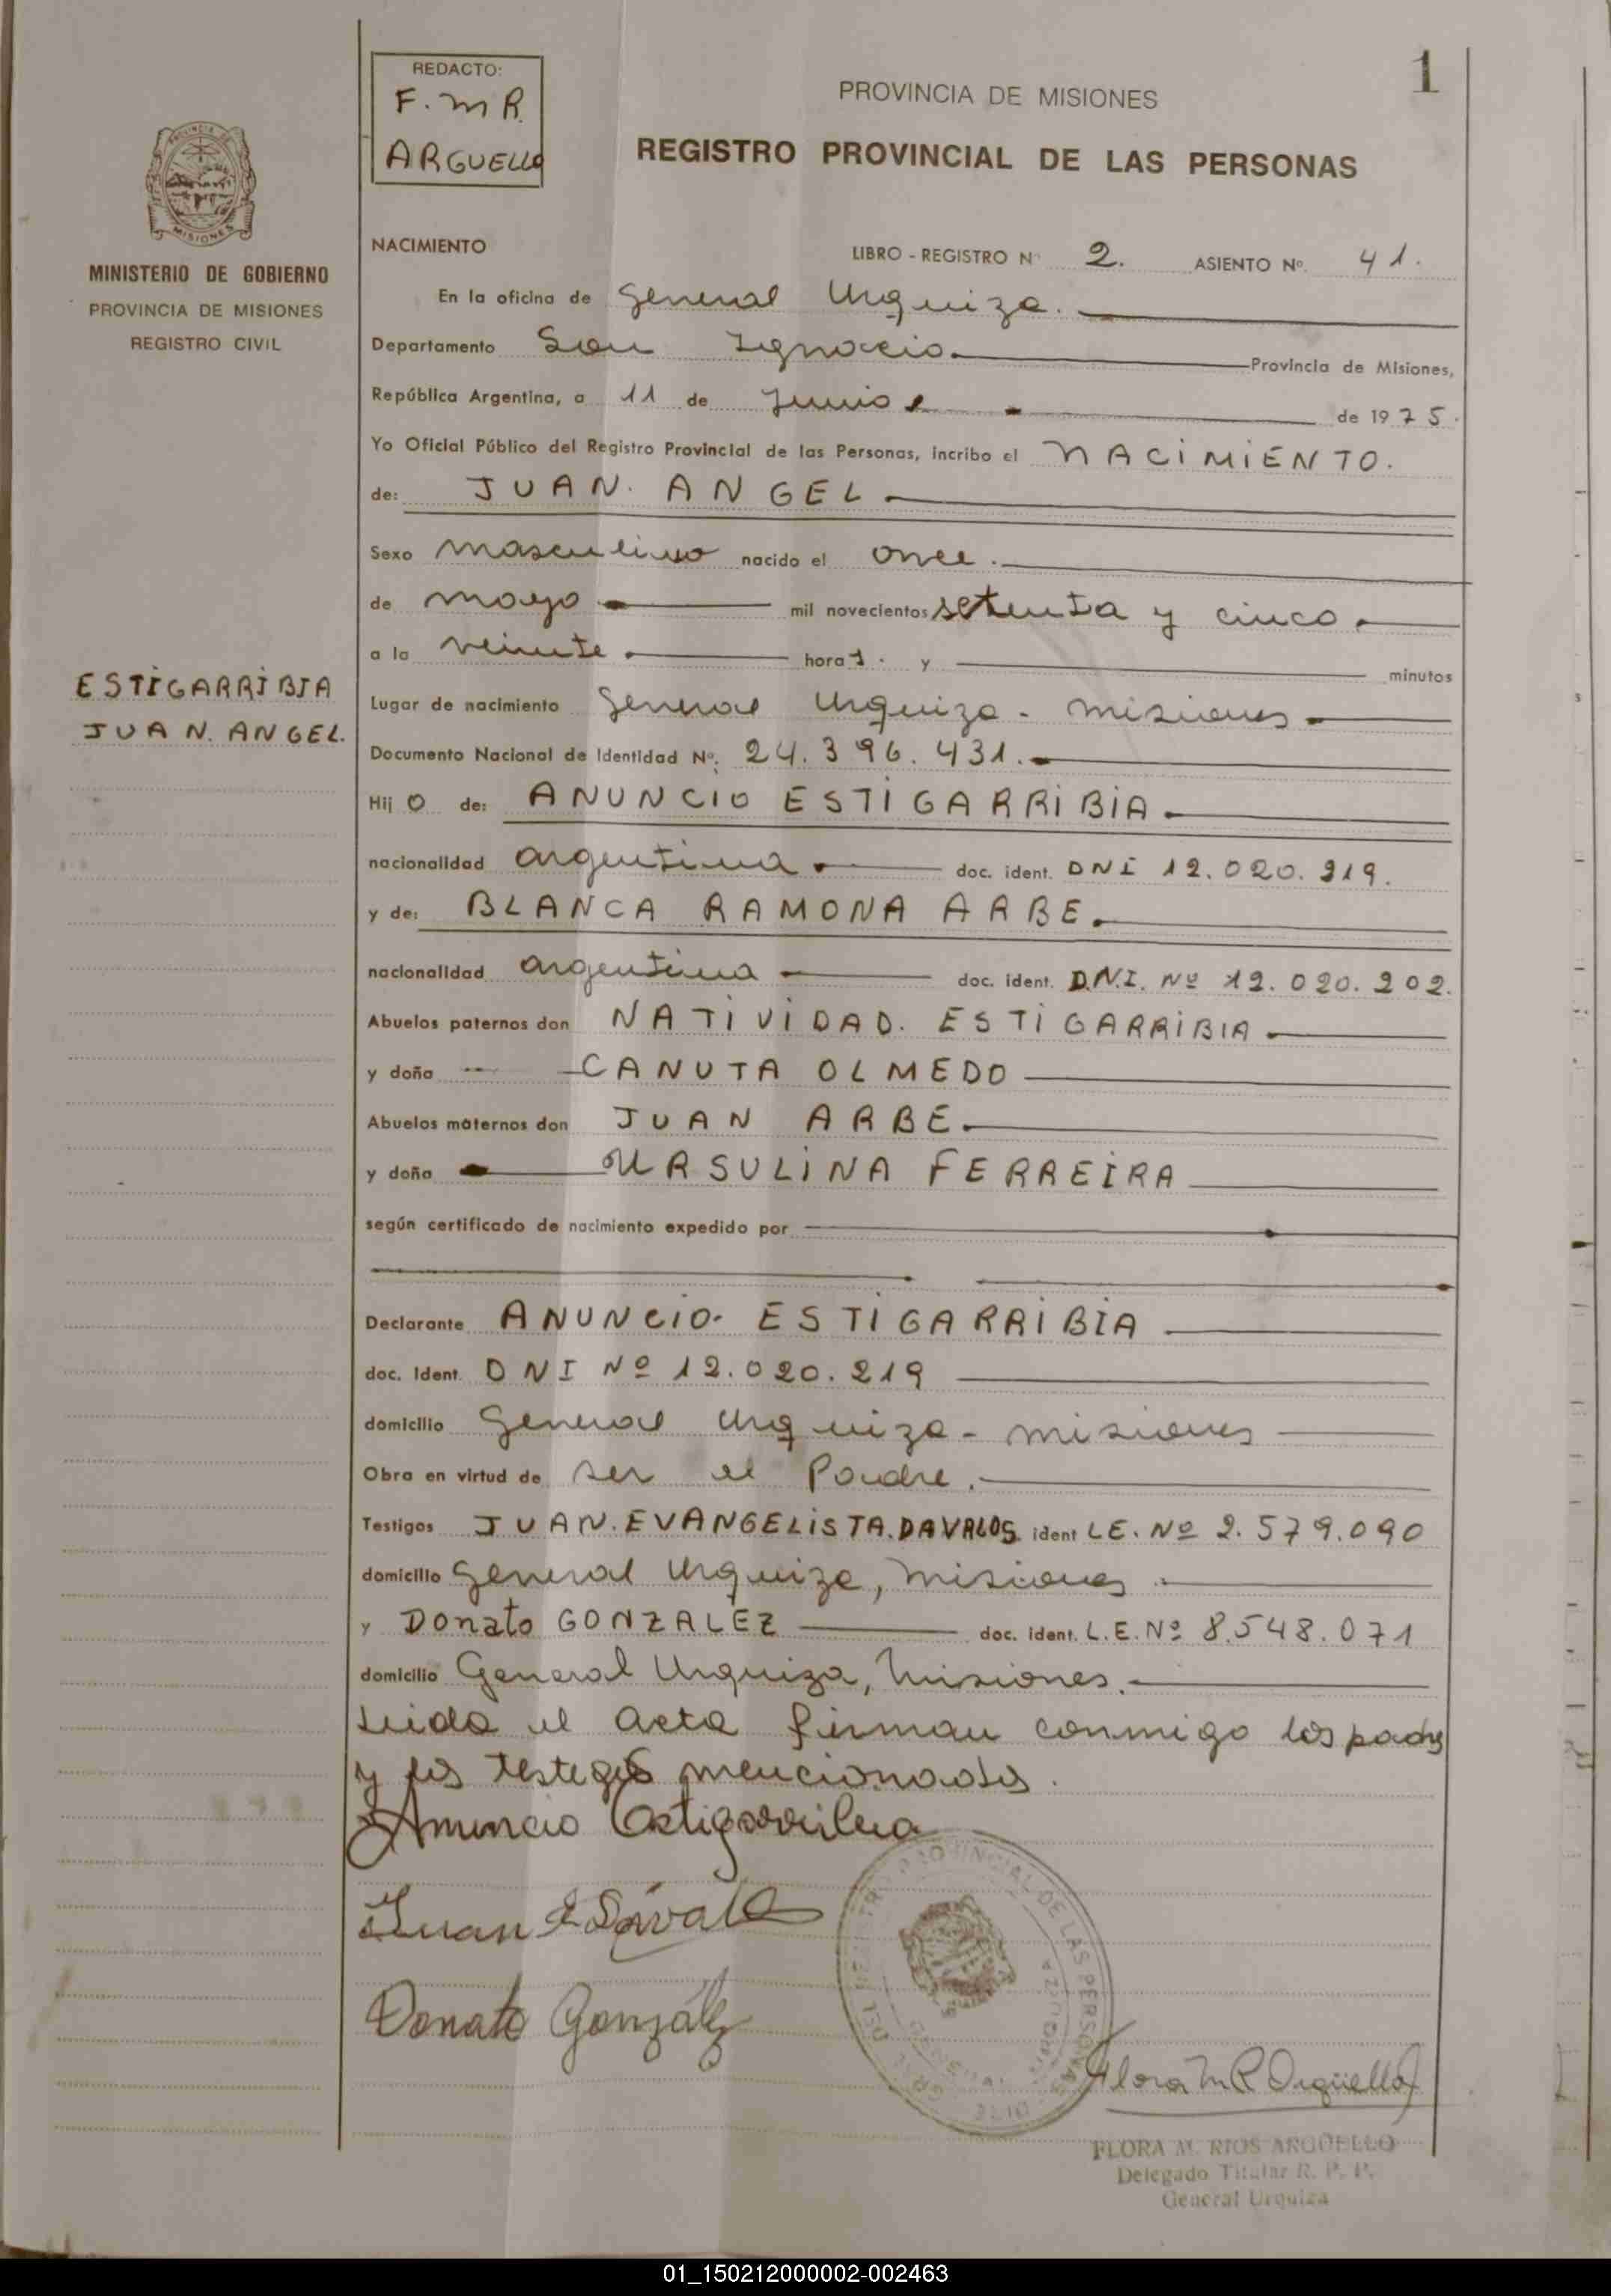 1
REDACTO:
F. M R.
ARGUELLO
PROVINCIA DE MISIONES
REGISTRO PROVINCIAL DE LAS PERSONAS
MISIONES
MINISTERIO DE GOBIERNO
PROVINCIA DE MISIONES
REGISTRO CIVIL
NACIMIENTO LIBRO - REGISTRO Nº 2. ASIENTO Nº. 41.
En la oficina de General Urquiza.
Departamento San Ignacio. Provincia de Misiones,
República Argentina, a 11 de Junio de 1975.
Yo Oficial Público del Registro Provincial de las Personas, incribo el NACIMIENTO.
de: JUAN. ANGEL
Sexo masculino nacido el once.
de mayo mil novecientos setenta y cinco.
a la veinte. hora s. y minutos
ESTIGARRIBIA
JUAN. ANGEL.
Lugar de nacimiento General Urquiza - misiones
Documento Nacional de Identidad Nº: 24.396.431.
Hij o de: ANUNCIO ESTIGARRIBIA.
nacionalidad argentina doc. ident. DNI 12.020.219.
y de: BLANCA RAMONA ARBE.
nacionalidad argentina doc. ident. D.N.I. Nº 12.020.202.
Abuelos paternos don NATIVIDAD. ESTIGARRIBIA
y doña CANUTA OLMEDO
Abuelos maternos don JUAN ARBE.
y doña URSULINA FERREIRA
según certificado de nacimiento expedido por
Declarante ANUNCIO. ESTIGARRIBIA
doc. ident. DNI Nº 12.020.219
domicilio General Urquiza - misiones
Obra en virtud de ser el Padre.
Testigos JUAN. EVANGELISTA. DAVALOS. ident LE. Nº 2.579.090
domicilio General Urquiza, misiones.
y Donato GONZALEZ doc. ident. L.E. Nº 8.548.071
domicilio General Urquiza, Misiones.
Leida el acta firman conmigo los padres
y los testigos mencionados.
Anuncio Estigarribia
Juan E Dávalos
Donato González
Flora M R Argüello
FLORA M. RIOS ARGÜELLO
Delegado Titular R. P. P.
General Urquiza
01_150212000002-002463